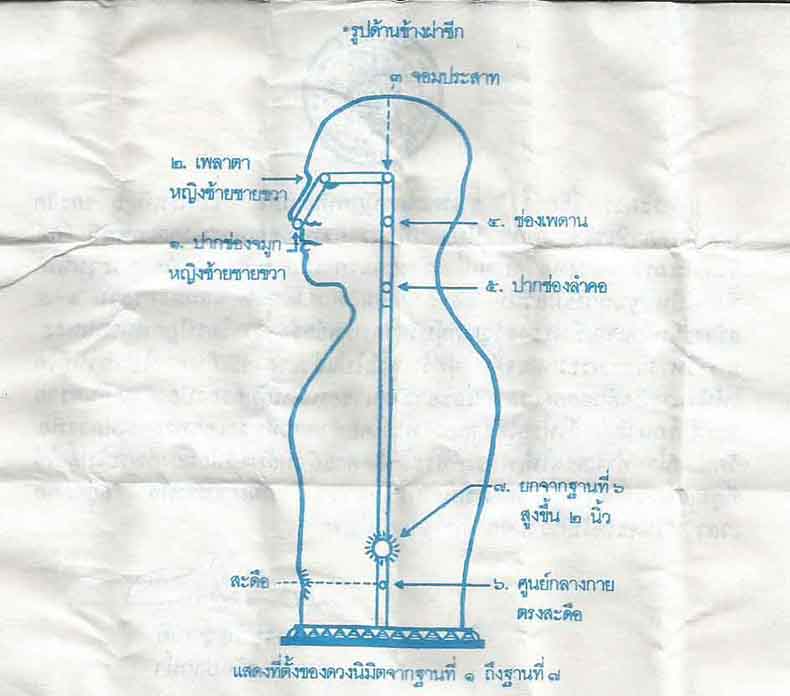 รูปด้านข้างผ่าซีก
๓ จอมประสาท
๒. เพลาตา
หญิงซ้ายชายขวา
๑. ปากช่องจมูก
หญิงซ้ายชายขวา
๔. ช่องเพดาน
๕. ปากช่องลำคอ
๗. ยกจากฐานที่ ๖
สูงขึ้น ๒ นิ้ว
สะดือ
๖. ศูนย์กลางกาย
ตรงสะดือ
แสดงที่ตั้งของดวงนิมิตจากฐานที่ ๑ ถึงฐานที่ ๗